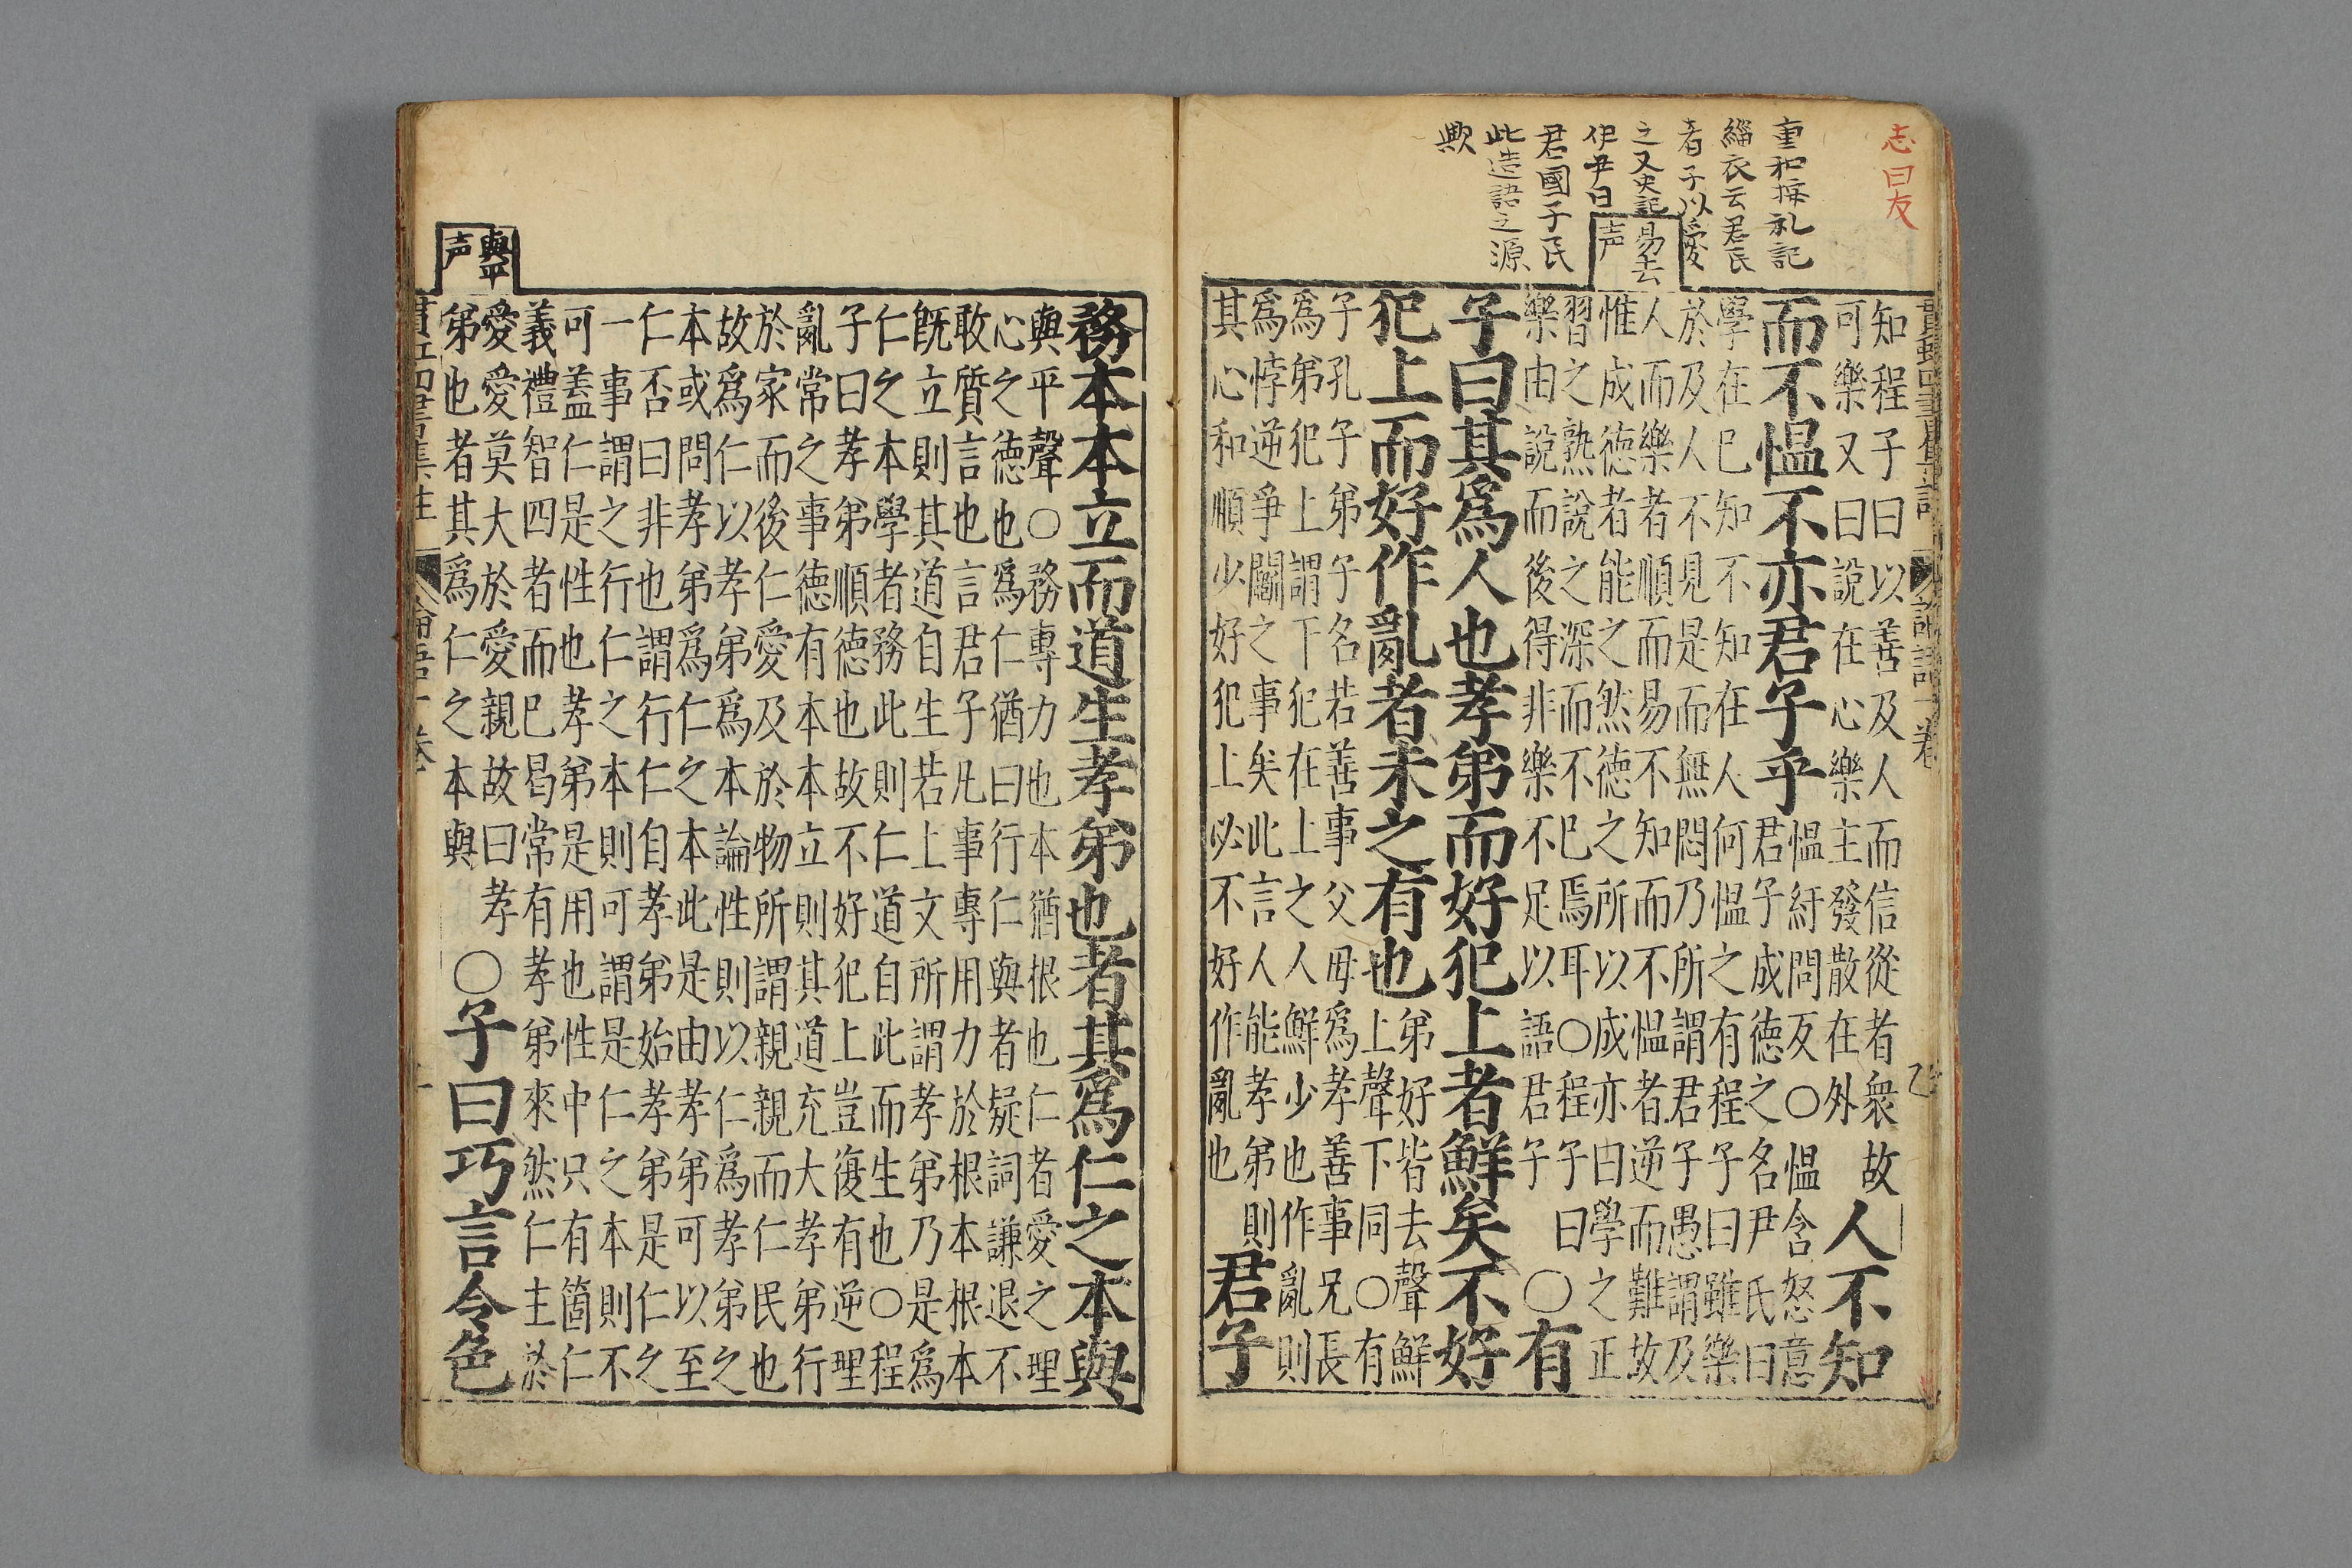 志曰友
重和按礼記
緇衣云君民
者子以愛
之又史記
伊尹曰
君國子民
此造語之源
歟
易去
声
知程子曰以善及人而信從者衆故
可樂又曰說在心樂主發散在外
人不知
而不愠不亦君子乎
愠紆問反○愠含怒意
君子成德之名尹氏曰
學在已知不知在人何愠之有程子曰雖樂
於及人不見是而無悶乃所謂君子愚謂及
人而樂者順而易不知而不愠者逆而難故
惟成徳者能之然徳之所以成亦曰學之正
習之熟說之深而不已焉耳○程子曰
樂由說而後得非樂不足以語君子
○有
子曰其爲人也孝弟而好犯上者鮮矣不好
犯上而好作亂者未之有也
弟好皆去聲鮮
上聲下同○有
子孔子弟子名若善事父母爲孝善事兄長
爲弟犯上謂下犯在上之人鮮少也作亂則
爲悖逆爭鬭之事矣此言人能孝弟則
其心和順少好犯上必不好作亂也
君子
與平
声
務本本立而道生孝弟也者其爲仁之本與
與平聲○務專力也本猶根也仁者愛之理
心之徳也爲仁猶曰行仁與者疑詞謙退不
敢質言也言君子凡事專用力於根本根本
旣立則其道自生若上文所謂孝弟乃是爲
仁之本學者務此則仁道自此而生也○程
子曰孝弟順徳也故不好犯上豈復有逆理
亂常之事徳有本本立則其道充大孝弟行
於家而後仁愛及於物所謂親親而仁民也
故爲仁以孝弟爲本論性則以仁爲孝弟之
本或問孝弟爲仁之本此是由孝弟可以至
仁否曰非也謂行仁自孝弟始孝弟是仁之
一事謂之行仁之本則可謂是仁之本則不
可蓋仁是性也孝弟是用也性中只有箇仁
義禮智四者而已曷常有孝弟來然仁主於
愛愛莫大於愛親故曰孝
弟也者其爲仁之本與
○子曰巧言令色